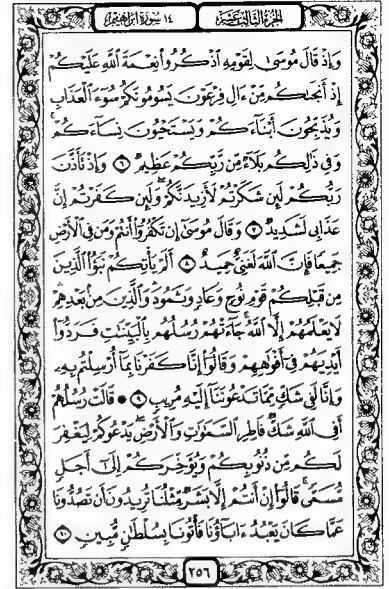 ١٤ سورة ابراهيم
الجزء الثالث عشر
وَإِذْ قَالَ مُوسَىٰ لِقَوْمِهِ ٱذْكُرُوا۟ نِعْمَةَ ٱللَّهِ عَلَيْكُمْ
إِذْ أَنجَىٰكُم مِّنْ ءَالِ فِرْعَوْنَ يَسُومُونَكُمْ سُوٓءَ ٱلْعَذَابِ
وَيُذَبِّحُونَ أَبْنَآءَكُمْ وَيَسْتَحْيُونَ نِسَآءَكُمْ ۚ
وَفِى ذَٰلِكُم بَلَآءٌ مِّن رَّبِّكُمْ عَظِيمٌ ٦ وَإِذْ تَأَذَّنَ
رَبُّكُمْ لَئِن شَكَرْتُمْ لَأَزِيدَنَّكُمْ ۖ وَلَئِن كَفَرْتُمْ إِنَّ
عَذَابِى لَشَدِيدٌ ٧ وَقَالَ مُوسَىٰٓ إِن تَكْفُرُوٓا۟ أَنتُمْ وَمَن فِى ٱلْأَرْضِ
جَمِيعًا فَإِنَّ ٱللَّهَ لَغَنِىٌّ حَمِيدٌ ٨ أَلَمْ يَأْتِكُمْ نَبَؤُا۟ ٱلَّذِينَ
مِن قَبْلِكُمْ قَوْمِ نُوحٍ وَعَادٍ وَثَمُودَ ۛ وَٱلَّذِينَ مِنۢ بَعْدِهِمْ ۛ
لَا يَعْلَمُهُمْ إِلَّا ٱللَّهُ ۚ جَآءَتْهُمْ رُسُلُهُم بِٱلْبَيِّنَٰتِ فَرَدُّوٓا۟
أَيْدِيَهُمْ فِىٓ أَفْوَٰهِهِمْ وَقَالُوٓا۟ إِنَّا كَفَرْنَا بِمَآ أُرْسِلْتُم بِهِۦ
وَإِنَّا لَفِى شَكٍّ مِّمَّا تَدْعُونَنَآ إِلَيْهِ مُرِيبٍ ٩ ۞ قَالَتْ رُسُلُهُمْ
أَفِى ٱللَّهِ شَكٌّ فَاطِرِ ٱلسَّمَٰوَٰتِ وَٱلْأَرْضِ ۖ يَدْعُوكُمْ لِيَغْفِرَ
لَكُم مِّن ذُنُوبِكُمْ وَيُؤَخِّرَكُمْ إِلَىٰٓ أَجَلٍ
مُّسَمًّى ۚ قَالُوٓا۟ إِنْ أَنتُمْ إِلَّا بَشَرٌ مِّثْلُنَا تُرِيدُونَ أَن تَصُدُّونَا
عَمَّا كَانَ يَعْبُدُ ءَابَآؤُنَا فَأْتُونَا بِسُلْطَٰنٍ مُّبِينٍ ١٠
٢٥٦